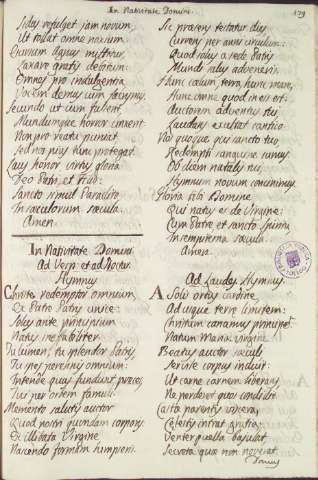 In Nativitate Domini.
179
Sidus refulget jam novum,
Ut tollat omne noxium.
E sursum Agnus mittitur,
Laxare gratis debitum:
Omnes pro indulgentia
Vocem demus cum lacrymis.
Secundo ut cum fulserit,
Mundumque horror cinxerit.
Non pro reatu puniat
Sed nos pius tunc protegat.
Laus honor virtus gloria
Deo Patri et Filio:
Sancto simul Paraclito,
In sæculorum sæcula.
Amen.
In Nativitate Domini
Ad Vesp: et ad Noctur.
Hymnus
Christe redemptor omnium,
Ex Patre Patris unice:
Solus ante principium
Natus ineffabiliter.
Tu lumen, tu splendor Patris,
Tu spes perennis omnium:
Intende quas fundunt preces,
Tui per orbem famuli.
Memento salutis auctor
Quod nostri quondam corporis
Ex illibata Virgine
Nascendo formam sumpseris.
Sic præsens testatur dies
Currens per anni circulum:
Quod solus a sede Patris
Mundi salus adveneris.
Hunc cælum, terra, hunc mare,
Hunc omne quod in eis est:
Auctorem adventus tui,
Laudans exultat cantico.
Nos quoque qui sancto tuo
Redempti sanguine sumus
Ob diem natalis tui,
Hymnum novum concinimus.
Gloria tibi Domine
Qui natus es de Virgine:
Cum Patre et sancto Spiritu
In sempiterna sæcula.
Amen.
Ad Laudes Hymnus.
A Solis ortus cardine,
Ad usque terræ limitem:
Christum canamus principem
Natum Maria virgine.
Beatus auctor sæculi
Servile corpus induit:
Ut carne carnem liberans
Ne perderet quos condidit.
Castæ parentis viscera,
Cælestis intrat gratia,
Venter puellæ bajulat
Secreta quæ non noverat.
Domus